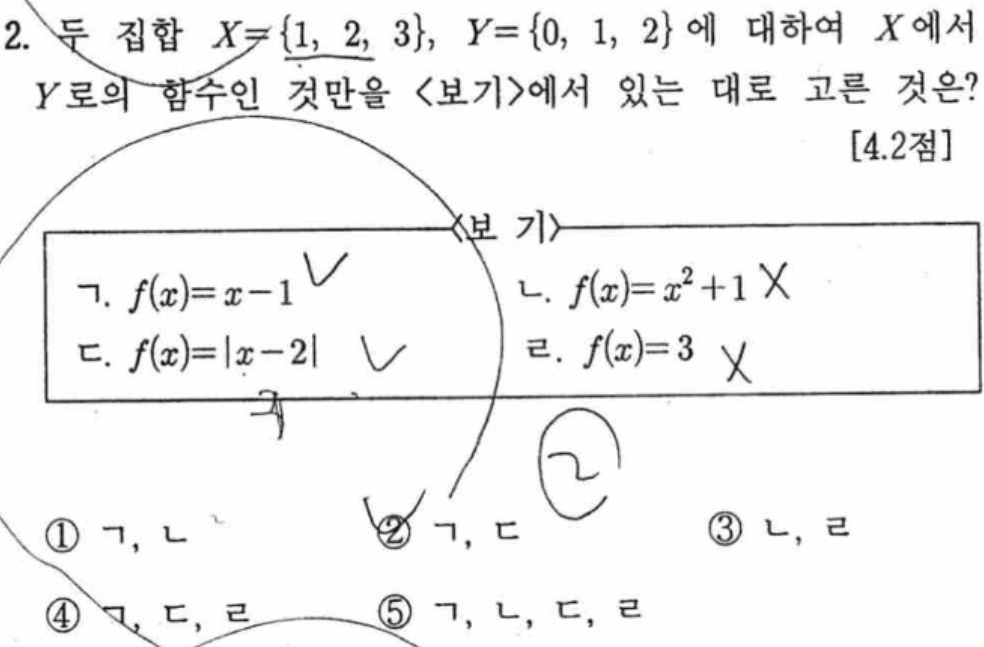 2. 두 집합 X={1, 2, 3}, Y={0, 1, 2}에 대하여 X에서
Y로의 함수인 것만을 <보기>에서 있는 대로 고른 것은?
[4.2점]
<보 기>
ㄱ. f(x)=x-1 ㄴ. f(x)=x²+1
ㄷ. f(x)=|x-2| ㄹ. f(x)=3
2
① ㄱ, ㄴ ② ㄱ, ㄷ ③ ㄴ, ㄹ
④ ㄱ, ㄷ, ㄹ ⑤ ㄱ, ㄴ, ㄷ, ㄹ